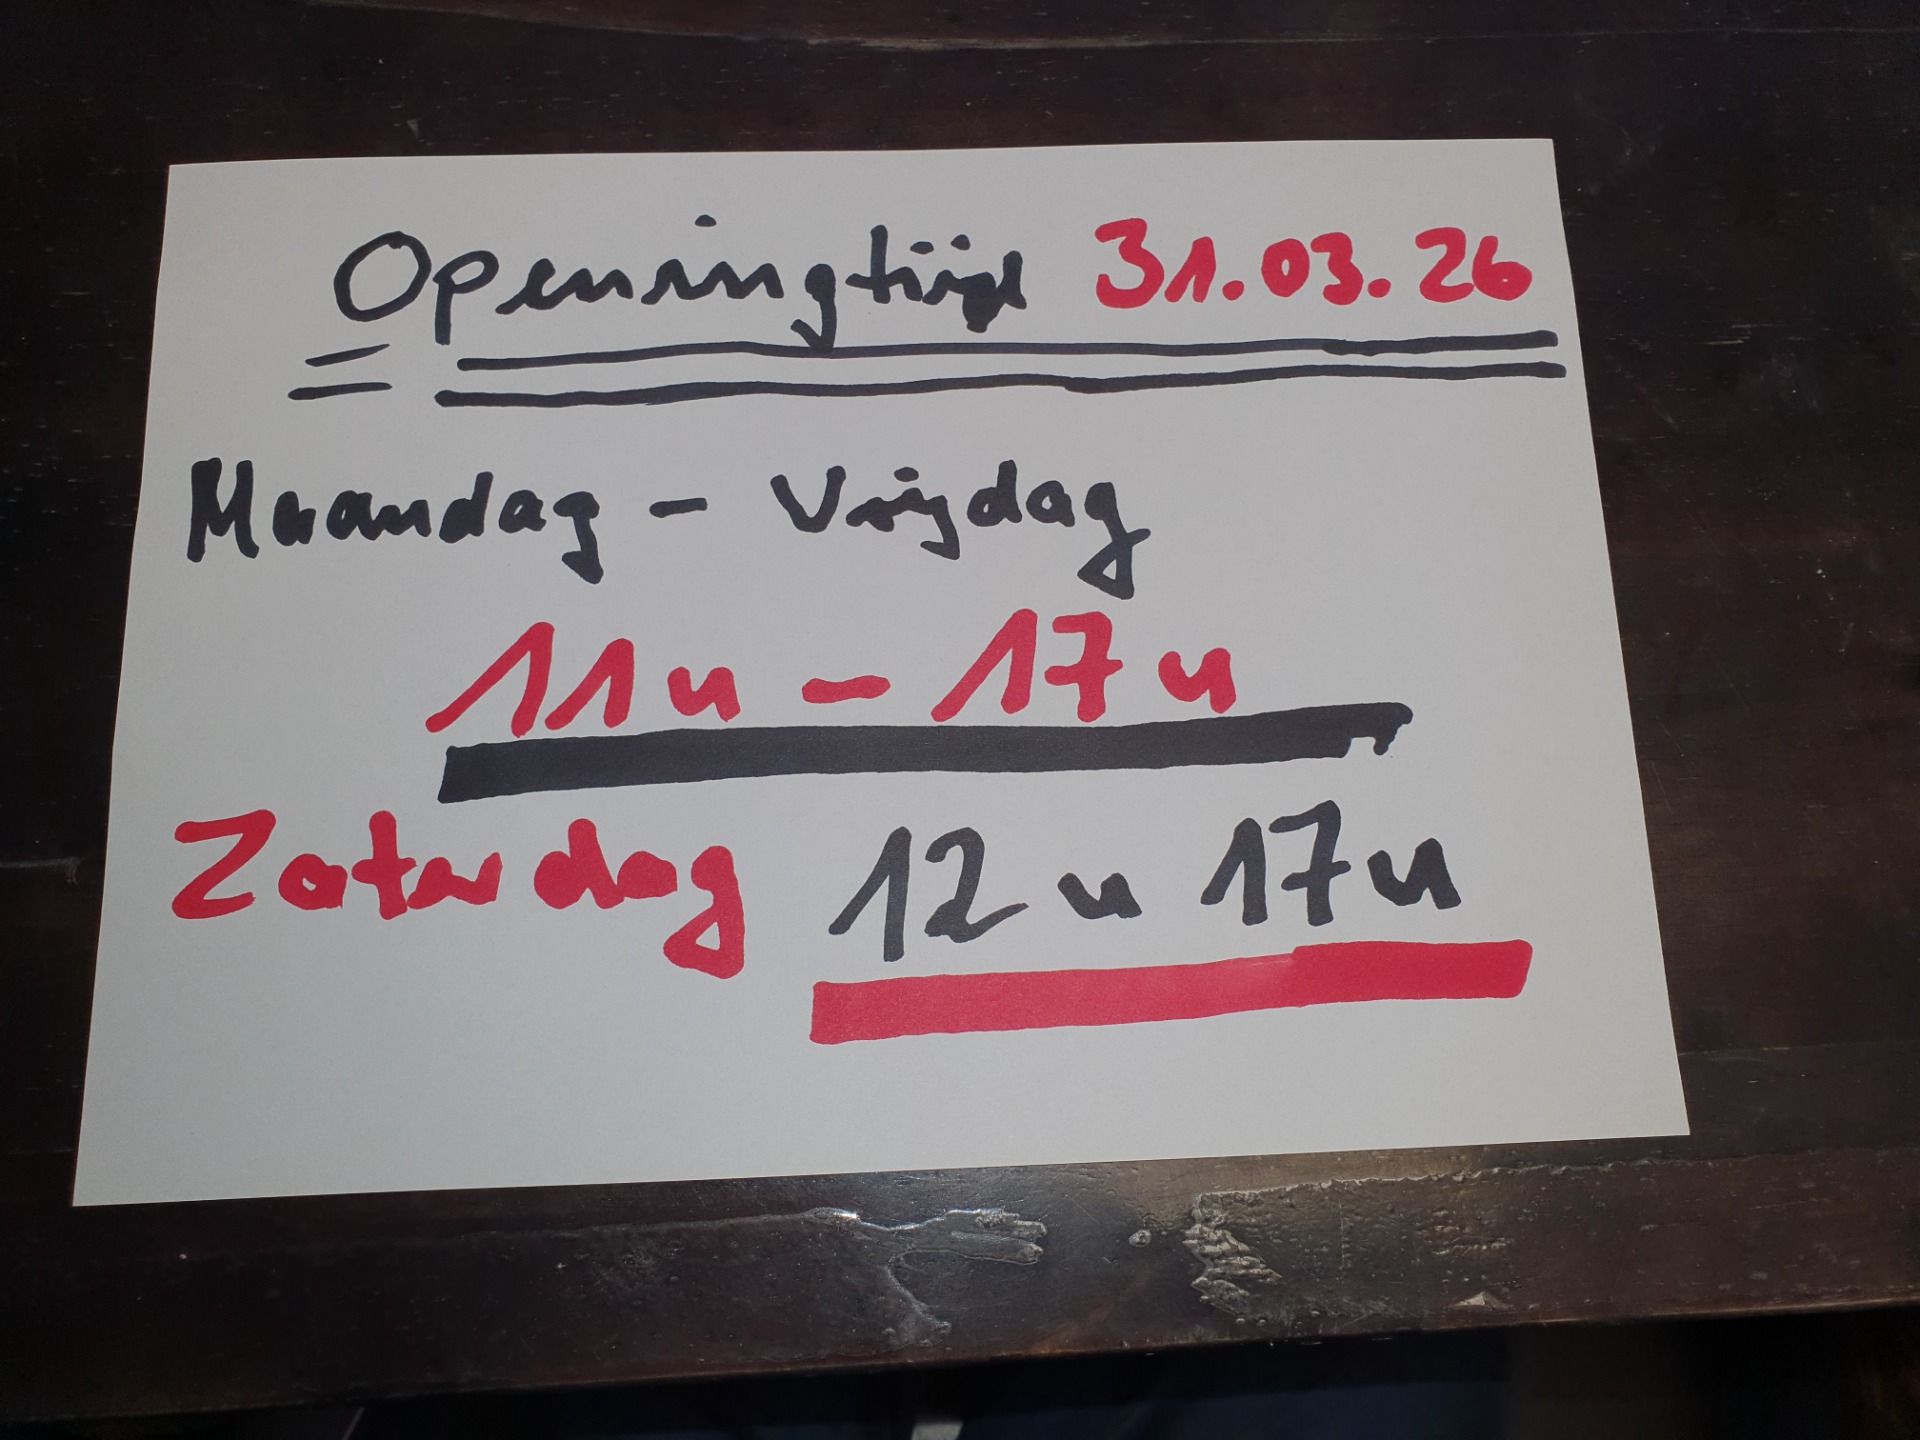 Openingtije 31.03.26
Maandag - Vrijdag
11u - 17u
Zaterdag 12u 17u